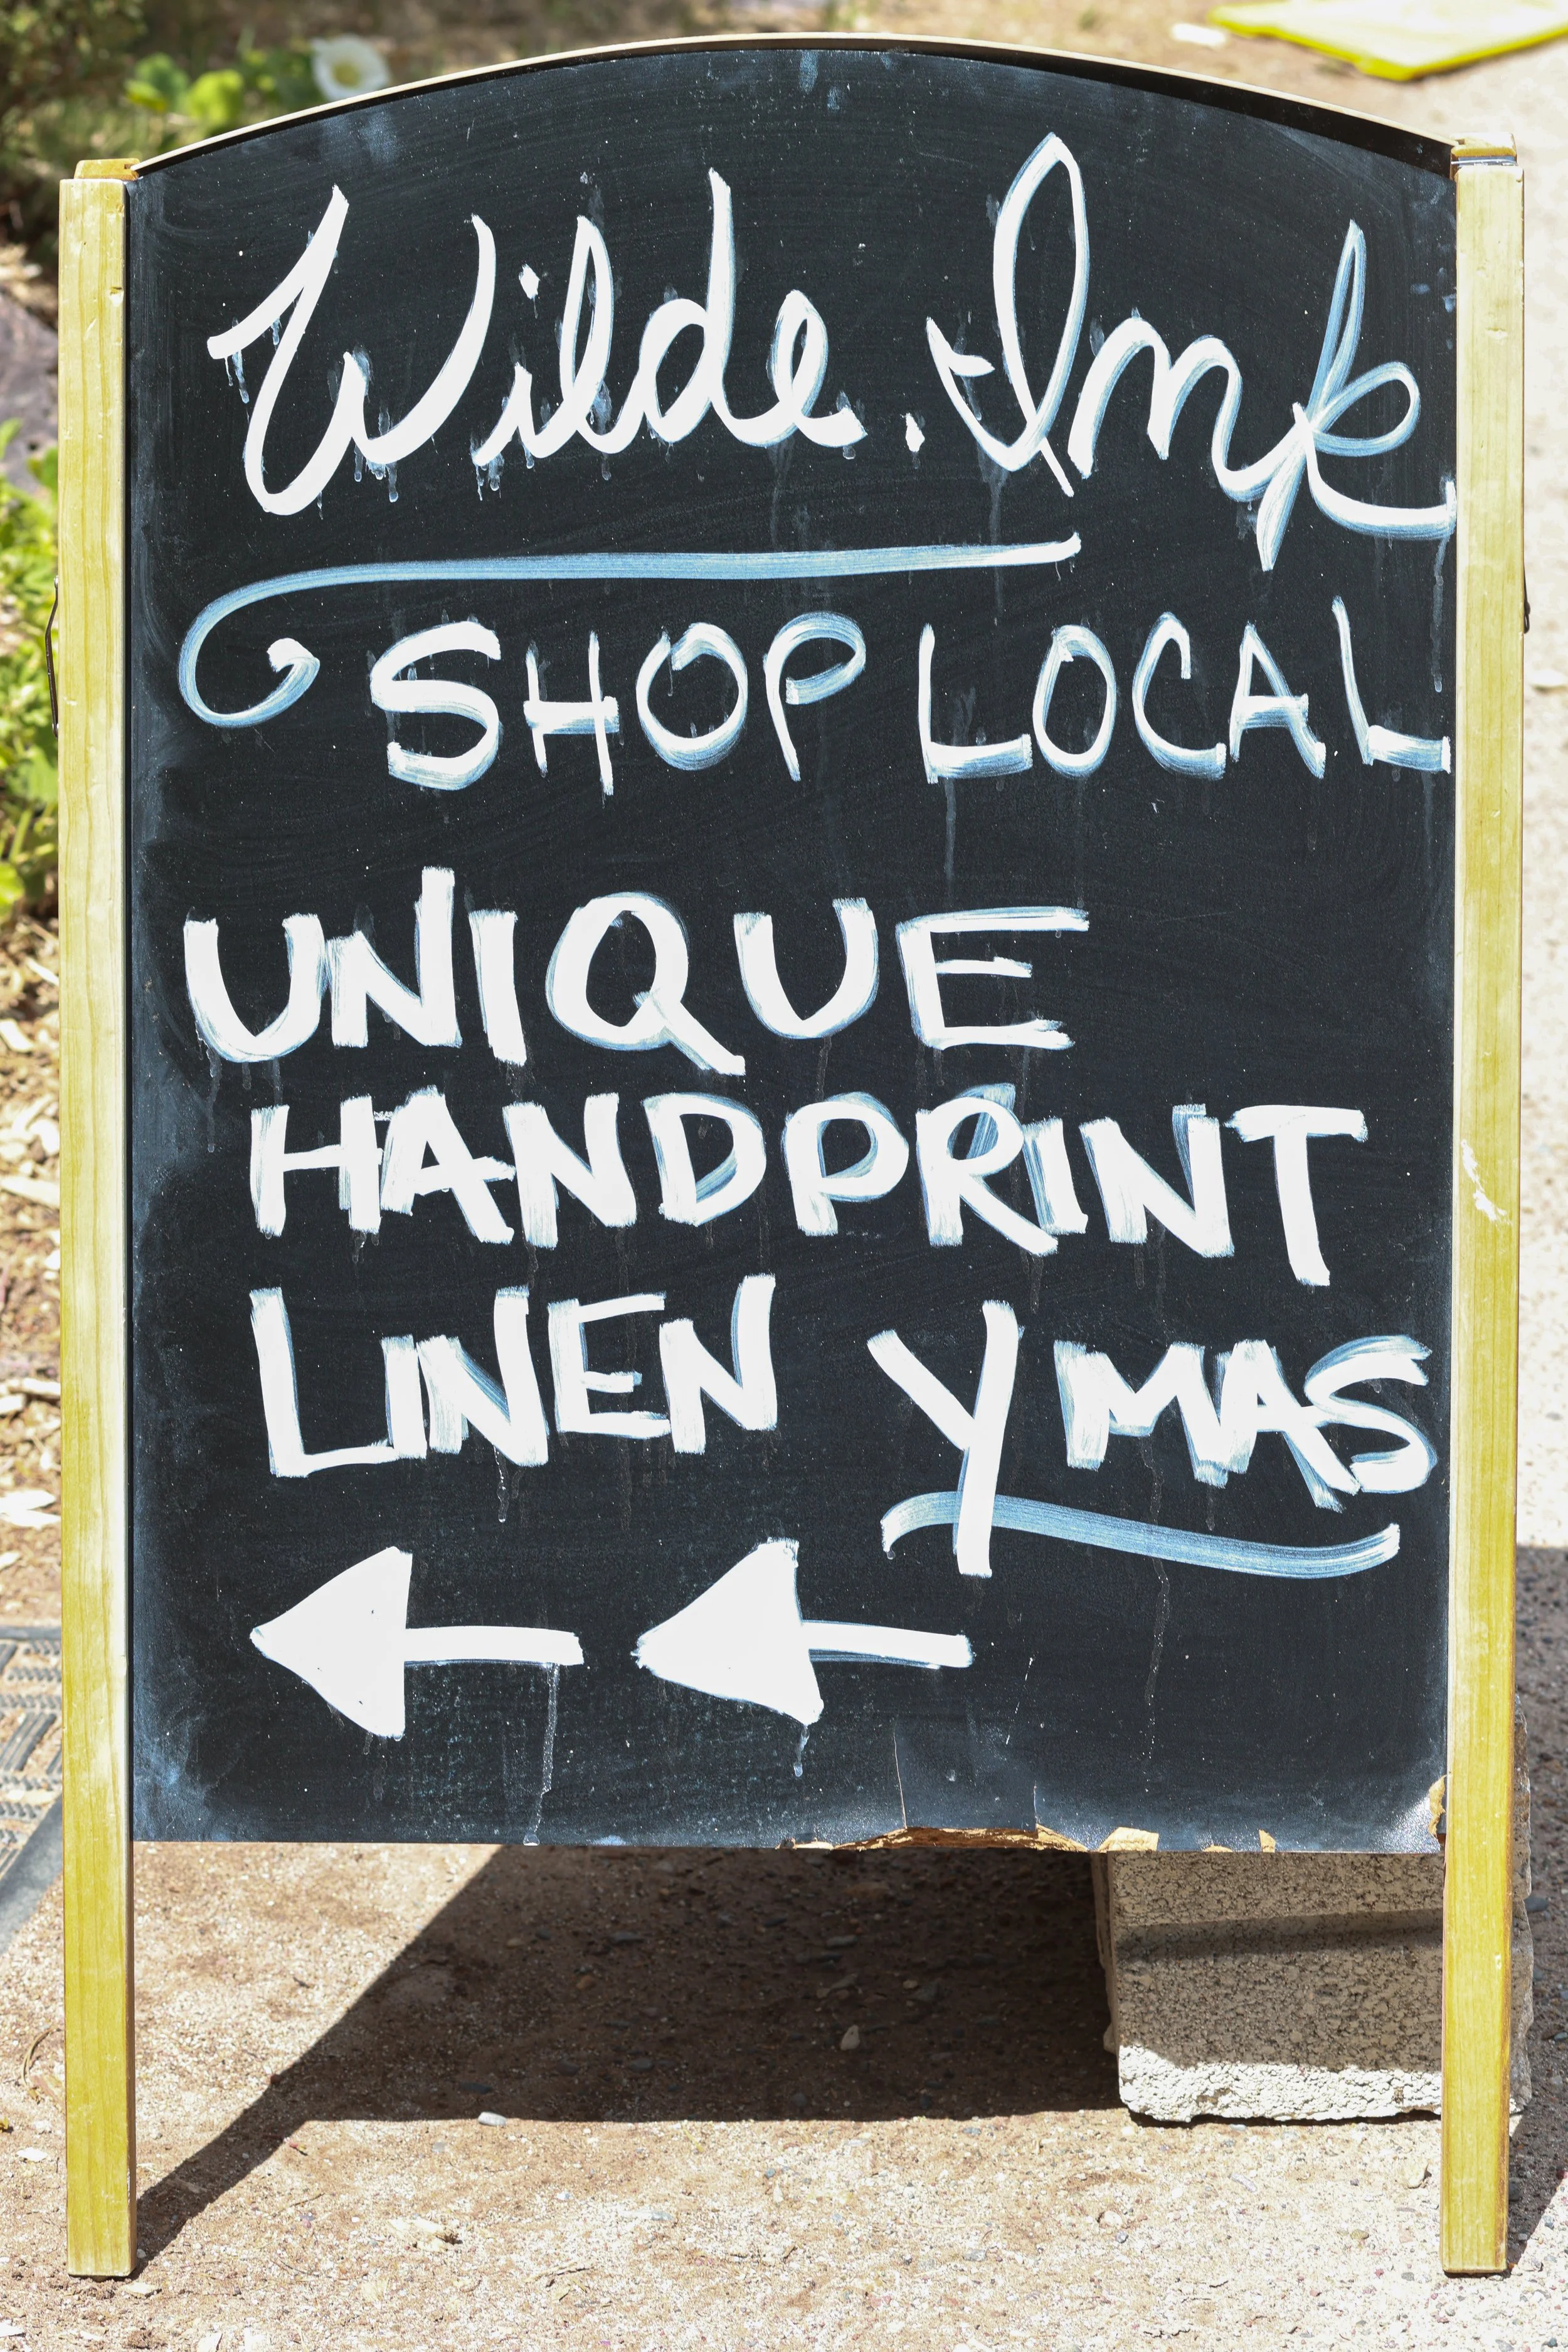 Wilde. Ink
SHOP LOCAL
UNIQUE
HANDPRINT
LINEN Y MAS